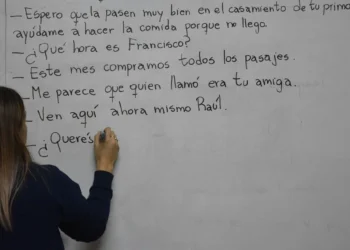 - Espero que la pasen muy bien en el casamiento de tu primo
ayúdame a hacer la comida porque no llego.
- ¿Qué hora es Francisco?
- Este mes compramos todos los pasajes.
- Me parece que quien llamó era tu amiga.
- Ven aquí ahora mismo Raúl.
- ¿Querés